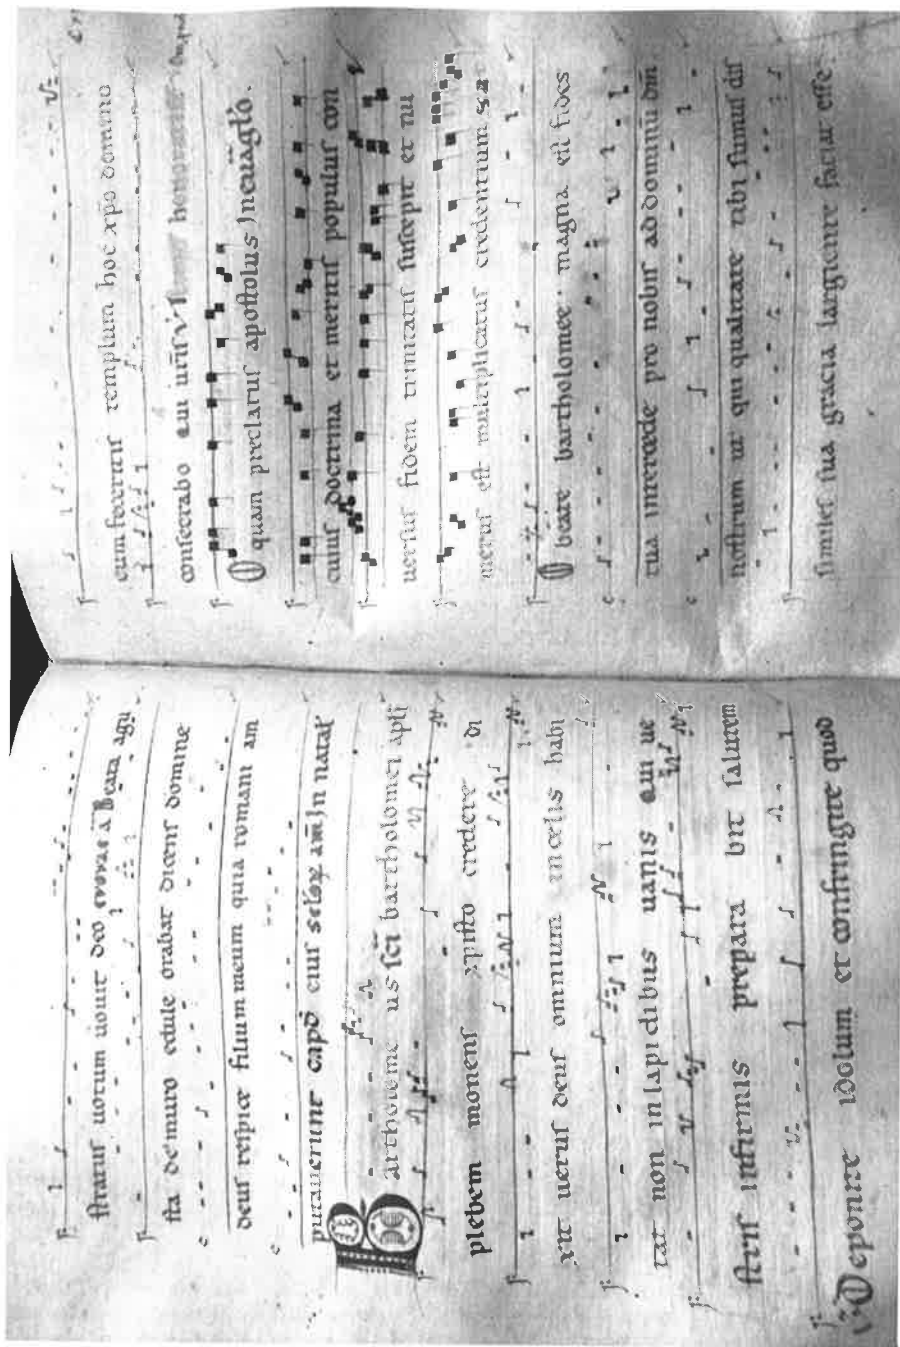 ſtratuſ uotum uouit deo evovae a Beata agu
ſta de muro edule orabat dicenſ domine
deuſ reſpice filium meum quia romam am
putauerunt capd eiuſ ſeloꝝ am̄ In natał
Bartholome us ſci bartholomei apłi
plebem monenſ xpiſto credere di
xit ueruſ deuſ omnium in celis habi
tat non in lapidibus uanis aui ue
ſtriſ infirmis prepara bit ſalutem
Deponite idolum et confringite quod
cum feceritiſ templum hoc xp̄o domino
conſecrabo aui ur̄iſ honorauit
O quam preclaruſ apoſtoluſ In euāgto.
cuiuſ doctrina et meritiſ populuſ con
uerſuſ fidem trinitatiſ ſuſcepit et nu
meruſ eſt multiplicatuſ credentium
O beate bartholomee magna eſt fides
tua intercede pro nobiſ ad dominū dm̄
noſtrum ut qui qualitate tibi ſumuſ diſ
ſimileſ ſua gracia largiente faciat eſſe.